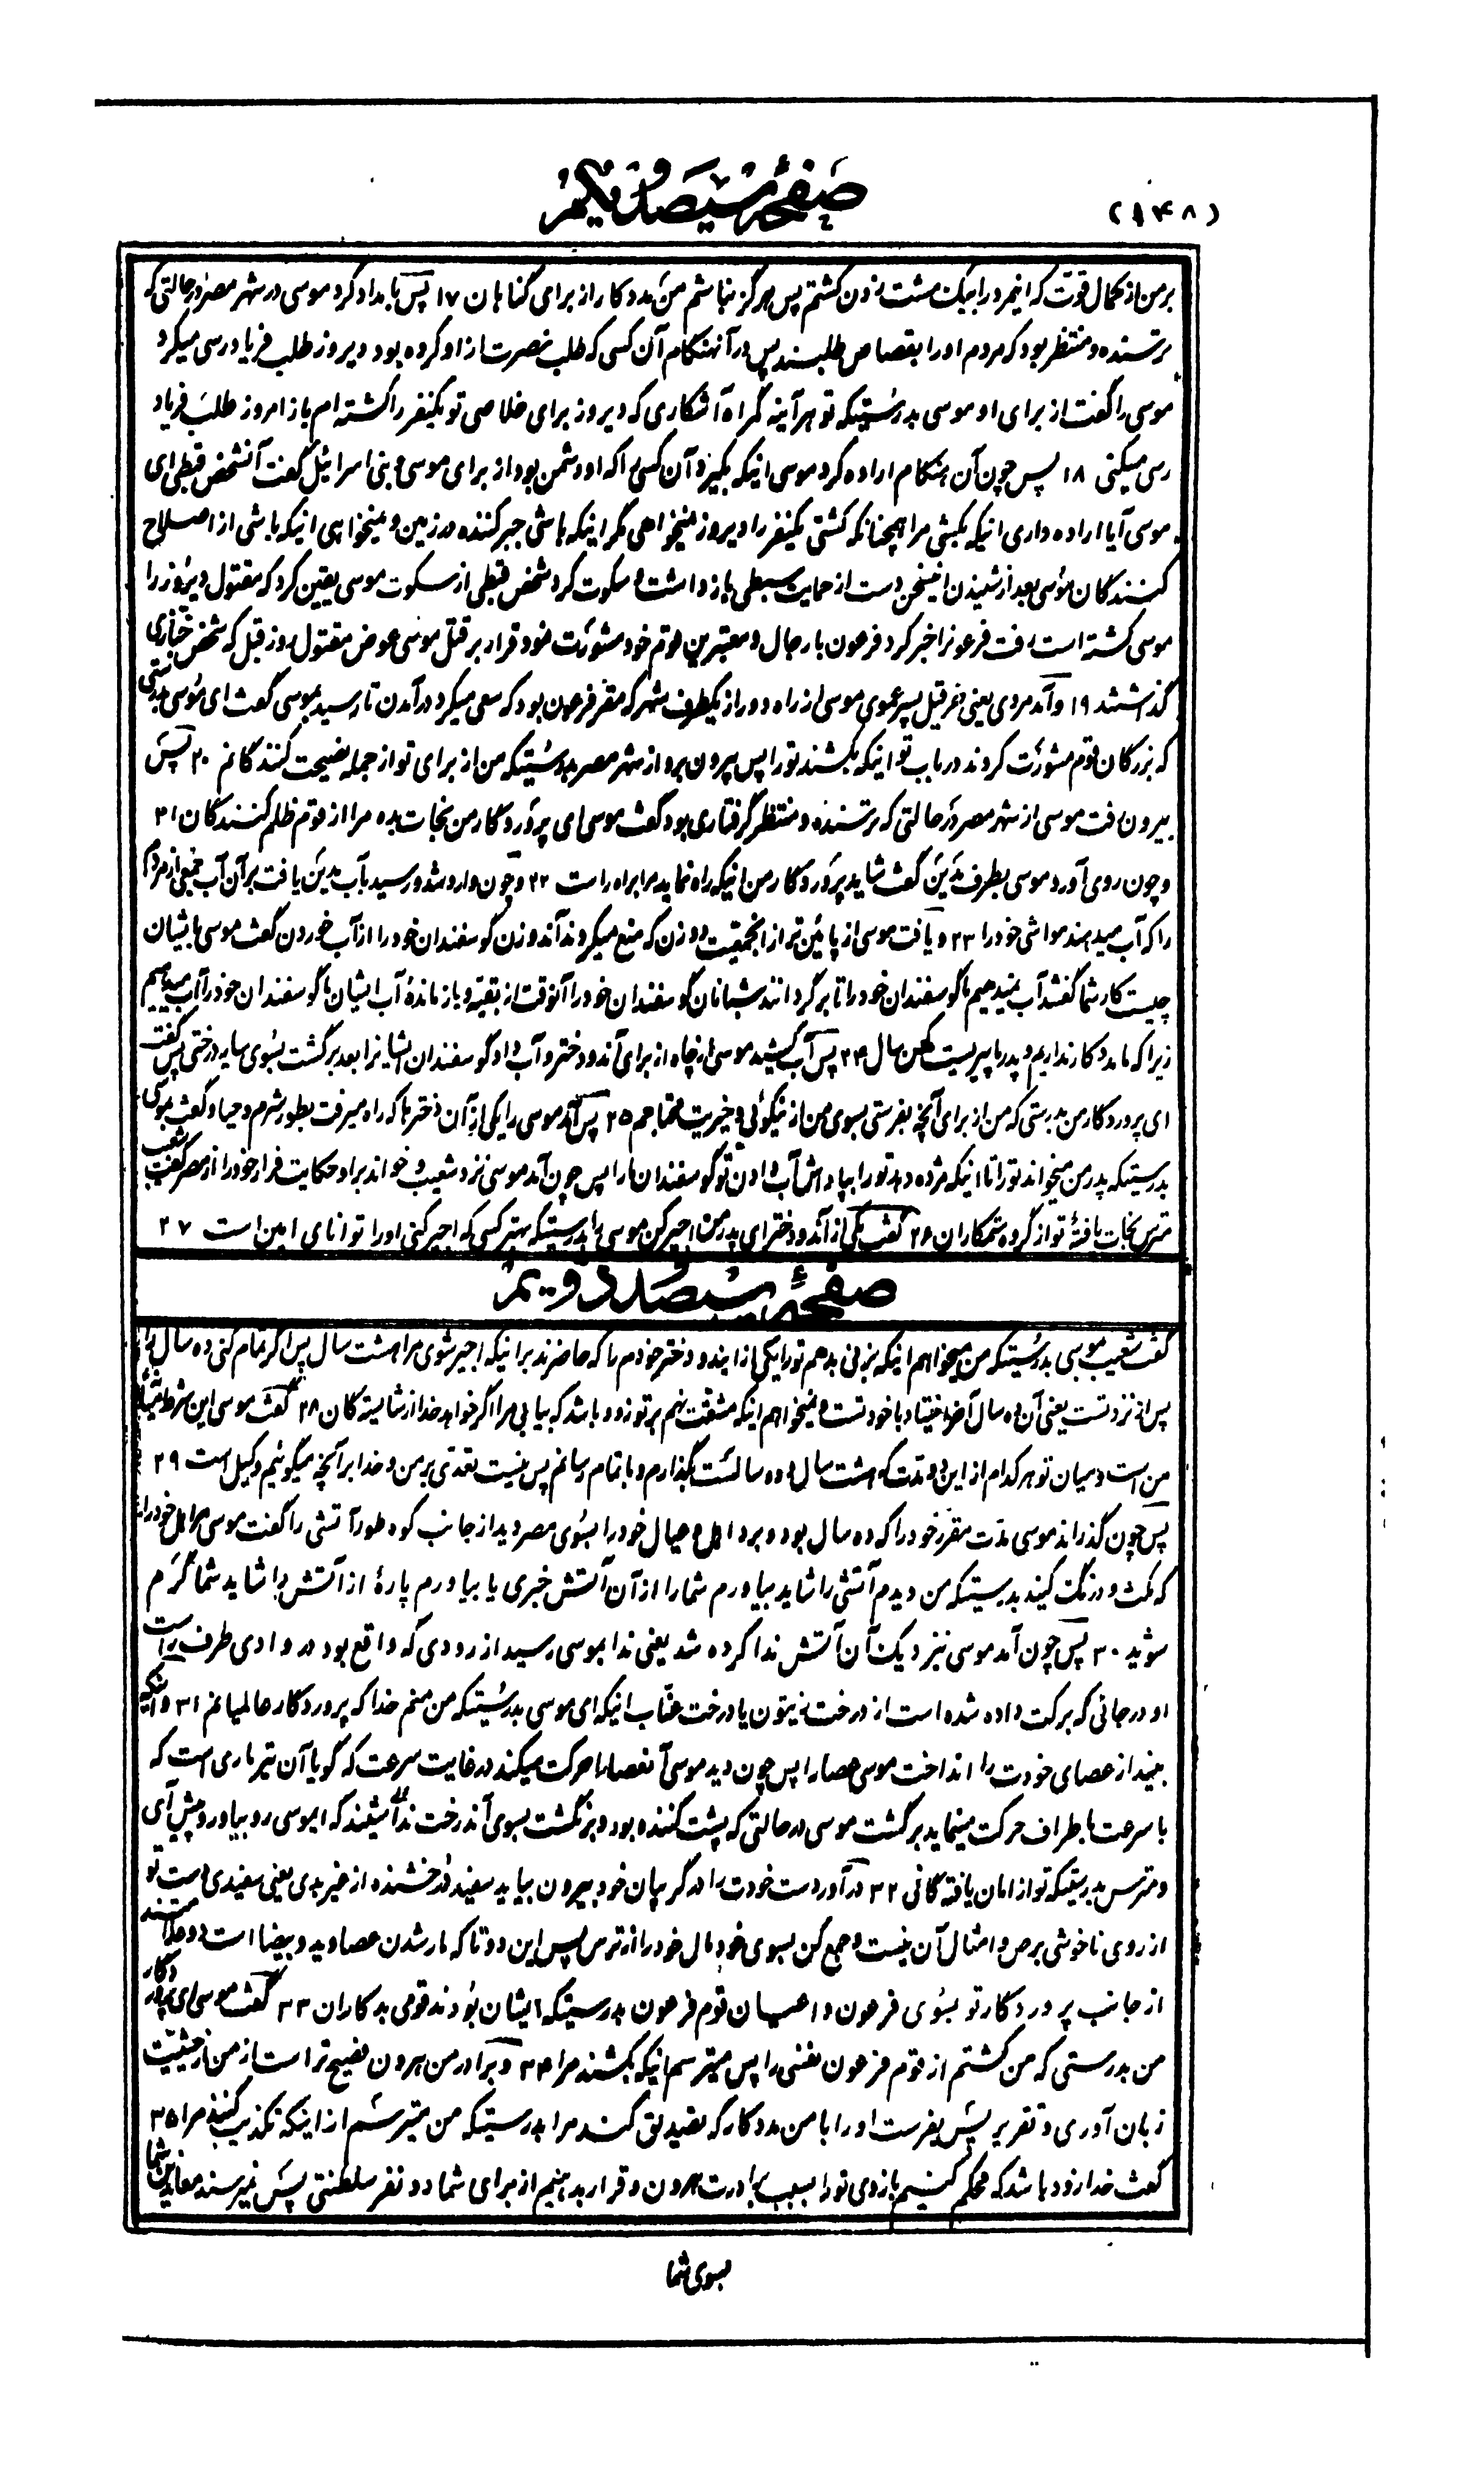 (۱۴۸)
صفحهٔ سیصد و یکم
بر من از کمال قوّت که اینمرد را بیک مشت زدن کشتم پس هرگز نباشم من مددکار از برای گناهان ۱۷ پس بامداد کرد موسی در شهر مصر در حالتی که
ترسنده و منتظر بود که مردم او را بقصاص طلبند پس در آنهنگام آن کسی که طلب نصرت از او کرده بود دیروز طلب فریادرسی میکرد
موسی را گفت از برای او موسی بدرستیکه تو هر آینه گمراه آشکاری که دیروز برای خلاصی تو یکنفر را کشته‌ام باز امروز طلب فریاد
رسی میکنی ۱۸ پس چون آن هنگام اراده کرد موسی اینکه بگیرد آن کسی را که او دشمن بود از برای موسی و بنی اسرائیل گفت آنشخص قبطی ای
موسی آیا اراده داری اینکه بکشی مرا همچنانکه کشتی یکنفر را دیروز نمیخواهی مگر اینکه باشی جبر کننده در زمین و نمیخواهی اینکه باشی از اصلاح
کنندگان موسی بعد از شنیدن اینسخن دست از حمایت سبطی بازداشت و سکوت کرد شخص قبطی از سکوت موسی یقین کرد که مقتول دیروز را
موسی کشته است رفت فرعون را خبر کرد فرعون با رجال و معتبرین قوم خود مشورت نمود قرار بر قتل موسی عوض مقتول روز قبل که شخص خبّازی
گذاشتند ۱۹ و آمد مردی یعنی خرقیل پسر عموی موسی از راه دور از یکطرف شهر که مقرّ فرعون بود که سعی میکرد در آمدن تا رسید بموسی گفت ای موسی بدرستی
که بزرگان قوم مشورت کردند در باب تو اینکه بکشند تو را پس بیرون برو از شهر مصر بدرستیکه من از برای تو از جمله نصیحت کنندگانم ۲۰ پس
بیرون رفت موسی از شهر مصر در حالتی که ترسنده و منتظر گرفتاری بود گفت موسی ای پروردگار من نجات بده مرا از قوم ظلم کنندگان ۲۱
و چون روی آورد موسی بطرف مدین گفت شاید پروردگار من اینکه راه نماید مرا براه راست ۲۲ و چون وارد شد و رسید بآب مدین یافت بر آن آب جمعی از مردم
را که آب میدهند مواشی خود را ۲۳ و یافت موسی از پائین‌تر از آنجمعیت دو زن که منع میکردند آندو زن گوسفندان خود را از آب خوردن گفت موسی بایشان
چیست کار شما گفتند آب نمیدهیم ما گوسفندان خود را تا برگردانند شبانان گوسفندان خود را آنوقت از بقیه و بازماندهٔ آب ایشان ما گوسفندان خود را آب میدهیم
زیرا که ما مددکار نداریم و پدر ما پیریست کهن سال ۲۴ پس آب کشید موسی از چاه از برای آندو دختر و آب داد گوسفندان ایشانرا بعد برگشت بسوی سایه درختی پس گفت
ای پروردگار من بدرستی که من از برای آنچه بفرستی بسوی من از نیکوئی و خیریت محتاجم ۲۵ پس آمد موسی را یکی از آن دخترها که راه میرفت بطور شرم و حیا و گفت بموسی
بدرستیکه پدر من میخواند تو را تا اینکه مژده دهد تو را بپاداش آب دادن تو گوسفندان ما را پس چون آمد موسی نزد شعیب و خواند بر او حکایت فرار خود را از مصر گفت شعیب
مترس نجات یافتهٔ تو از گروه ستمکاران ۲۶ گفت یکی از آندو دختر ای پدر من اجیر کن موسی را بدرستیکه بهتر کسی که اجیر کنی او را توانای امین است ۲۷
صفحهٔ سیصد و دویم
گفت شعیب بموسی بدرستیکه من میخواهم اینکه بزنی بدهم تو را یکی از ایندو دختر خودم را که حاضرند بر اینکه اجیر شوی مرا هشت سال پس اگر تمام کنی ده سال را
پس از نزد تست یعنی آن ده سال آخر اختیار با خود تست و نمیخواهم اینکه مشقت نهم بر تو زود باشد که بیابی مرا اگر خواهد خدا از شایسته‌گان ۲۸ گفت موسی این شرط میان
من است و میان تو هر کدام از این دو مدّت که هشت سال و ده سالست بگذارم و باتمام رسانم پس نیست تعدّی بر من و خدا بر آنچه میگوئیم وکیل است ۲۹
پس چون گذراند موسی مدت مقرر خود را که ده سال بود و برد اهل و عیال خود را بسوی مصر دید از جانب کوه طور آتشی را گفت موسی مر اهل خود را
که مکث و درنگ کنید بدرستیکه من دیدم آتشی را شاید بیاورم شما را از آن آتش خبری یا بیاورم پارهٔ از آتش را شاید شما گرم
شوید ۳۰ پس چون آمد موسی نزدیک آن آتش ندا کرده شد یعنی ندا بموسی رسید از رودی که واقع بود در وادی طرف راست
او در جائی که برکت داده شده است از درخت زیتون یا درخت عنّاب اینکه ای موسی بدرستیکه من منم خدا که پروردگار عالمیانم ۳۱ و اینکه
بینداز عصای خودت را انداخت موسی عصا را پس چون دید موسی آنعصا را حرکت میکند در غایت سرعت که گویا آن تیر ماری است که
با سرعت باطراف حرکت مینماید برگشت موسی در حالتی که پشت کننده بود و برنگشت بسوی آندرخت نداء شنید که ایموسی رو بیاور و پیش آی
و مترس بدرستیکه تو از امان یافته‌گانی ۳۲ درآور دست خودت را در گریبان خود بیرون بیاید سفید درخشنده از غیر بدی یعنی سفیدی دست تو
از روی ناخوشی برص و امثال آن نیست و جمع کن بسوی خود بال خود را از ترس پس این دو تا که مار شدن عصا و ید و بیضا است دو علامتند
از جانب پروردگار تو بسوی فرعون و اعیان قوم فرعون بدرستیکه ایشان بودند قومی بدکاران ۳۳ گفت موسی ای پروردگار
من بدرستی که من کشتم از قوم فرعون نفسی را پس میترسم اینکه بکشند مرا ۳۴ و برادر من هرون فصیح‌تر است از من از حیثیت
زبان آوری و تقریر پس بفرست او را با من مددکار که تصدیق کند مرا بدرستیکه من میترسم از اینکه تکذیب کنند مرا ۳۵
گفت خدا زود باشد که محکم کنیم بازوی تو را بسبب برادرت هرون و قرار بدهیم از برای شما دو نفر سلطنتی پس نمیرسند معاندین شما
بسوی شما